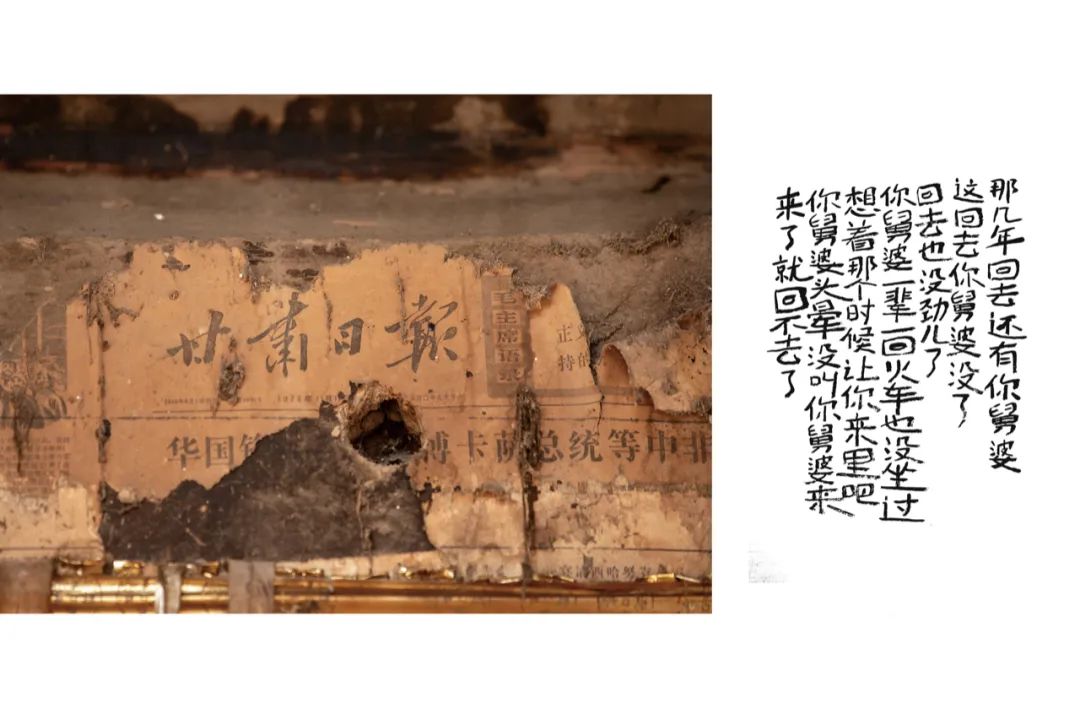 甘肅日報
毛主席语录
正义
持的
华国 卡萨总统等中非
那几年回去还有你舅婆
这回去你舅婆没了
回去也没劲儿了
你舅婆一辈一回火车也没坐过
想着那个时候让你来里吧
你舅婆头晕没叫你舅婆来
来了就回不去了